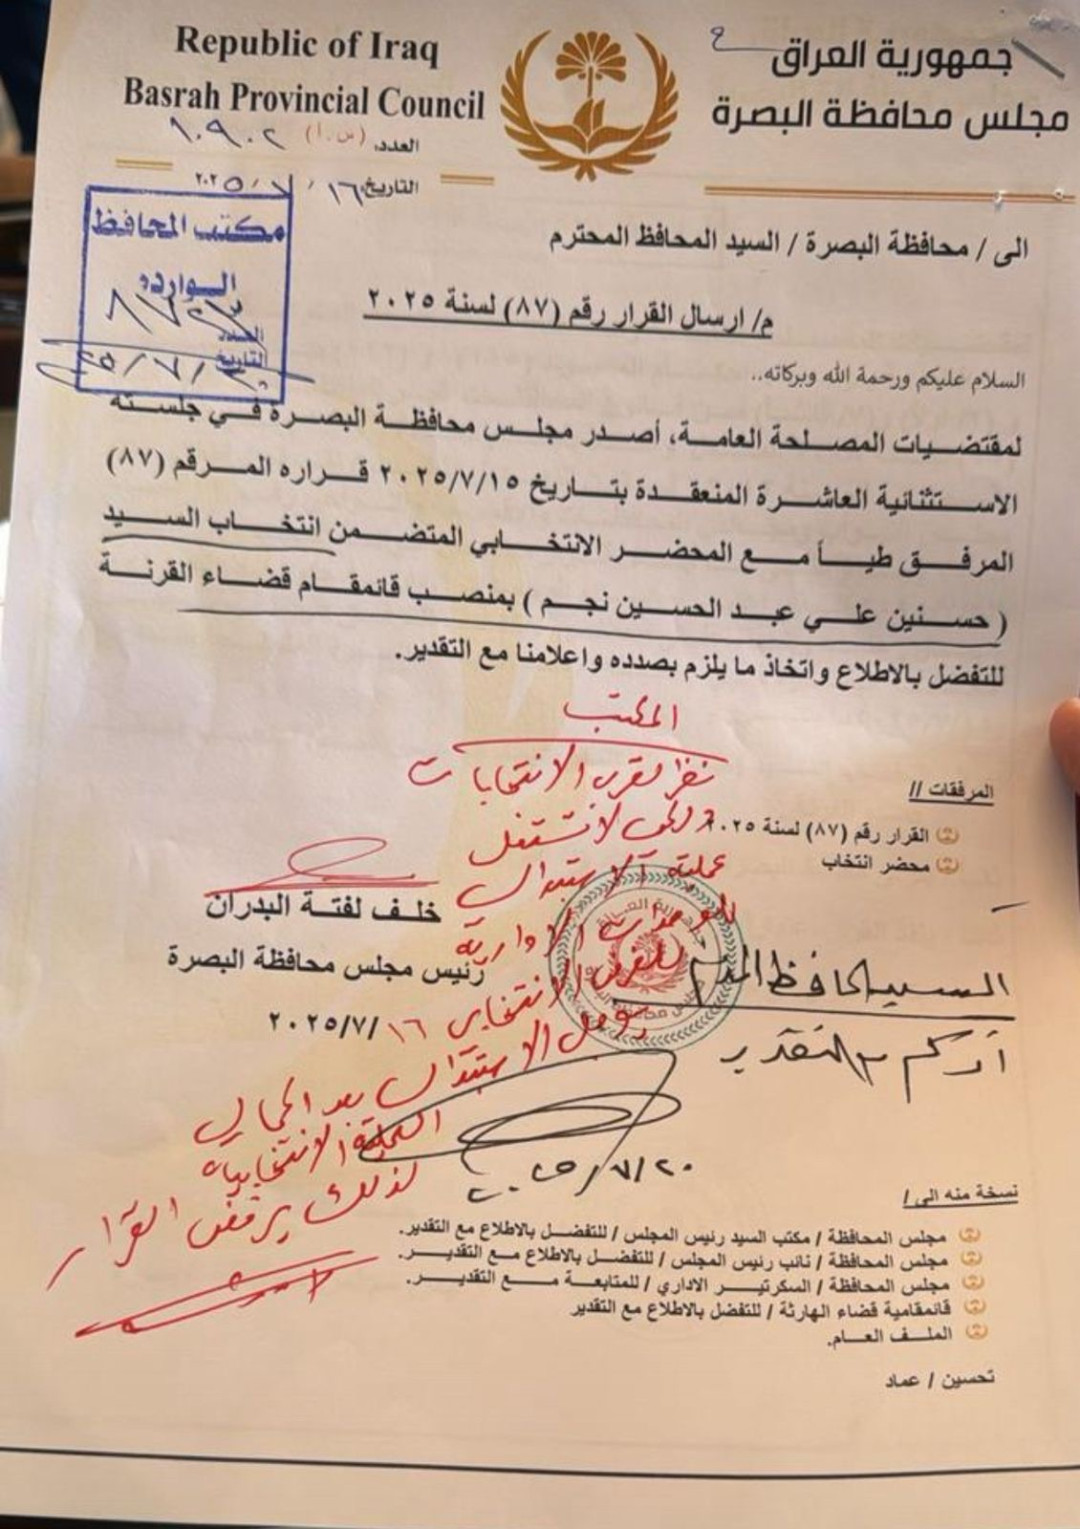 Republic of Iraq
Basrah Provincial Council
جمهورية العراق
مجلس محافظة البصرة
العدد، (س.أ) ١٠٩٠٢
التاريخ، ١٦ / ٧ / ٢٠٢٥
مكتب المحافظ
الواردة
العدد
التاريخ
الى / محافظة البصرة / السيد المحافظ المحترم
م/ ارسال القرار رقم (٨٧) لسنة ٢٠٢٥
السلام عليكم ورحمة الله وبركاته..
لمقتضيات المصلحة العامة، أصدر مجلس محافظة البصرة في جلسته
الاستثنائية العاشرة المنعقدة بتاريخ ٢٠٢٥/٧/١٥ قراره المرقم (٨٧)
المرفق طياً مع المحضر الانتخابي المتضمن انتخاب السيد
( حسنين علي عبد الحسين نجم ) بمنصب قائممقام قضاء القرنة
للتفضل بالاطلاع واتخاذ ما يلزم بصدده واعلامنا مع التقدير.
المكتب
نظرا لقرب الانتخابات
ولكي لا تستغل
عملية الاستبدال
للوحدات الادارية
للغرض الانتخابي
يؤجل الاستبدال بعد اكمال
العملية الانتخابية
لذلك يرفض القرار
المرفقات //
القرار رقم (٨٧) لسنة ٢٠٢٥
محضر انتخاب
خلف لفتة البدران
رئيس مجلس محافظة البصرة
٢٠٢٥/٧/١٦
السيد المحافظ المحترم
مع التقدير
٧/٢٠
نسخة منه الى /
مجلس المحافظة / مكتب السيد رئيس المجلس / للتفضل بالاطلاع مع التقدير.
مجلس المحافظة / نائب رئيس المجلس / للتفضل بالاطلاع مع التقدير.
مجلس المحافظة / السكرتير الاداري / للمتابعة مع التقدير.
قائممقامية قضاء الهارثة / للتفضل بالاطلاع مع التقدير
الملف العام.
تحسين / عماد